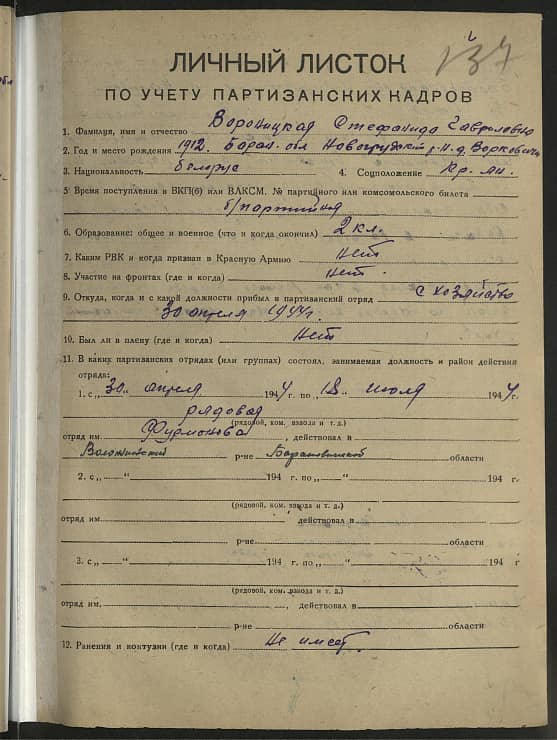 137
ЛИЧНЫЙ ЛИСТОК
ПО УЧЕТУ ПАРТИЗАНСКИХ КАДРОВ
1. Фамилия, имя и отчество Вороницкая Стефанида Гавриловна
2. Год и место рождения 1912. Баран. обл Новогрудский р-н. д. Воркович
3. Национальность белорус 4. Соцположение кр-ян.
5 Время поступления в ВКП(б) или ВЛКСМ. № партийного или комсомольского билета
б/партийная
6. Образование: общее и военное (что и когда окончил) 2 кл.
7. Каким РВК и когда призван в Красную Армию Нет
8. Участие на фронтах (где и когда) Нет.
9. Откуда, когда и с какой должности прибыл в партизанский отряд с хозяйство
30 апреля 1944г.
10. Был ли в плену (где и когда) Нет
11. В каких партизанских отрядах (или группах) состоял, занимаемая должность и район действия
отряда:
1. с „30„ апреля 1944г. по „18„ июля 1944г.
рядовая
(рядовой, ком. взвода и т. д.)
отряд им. Фурмонова, действовал в
Воложинский р-не Барановичской области
2. с „ “ 194 г. по „ “ 194 г
(рядовой, ком. взвода и т. д.)
отряд им. действовал в
р-не области
3. с „ “ 194 г. по „ “ 194 г
(рядовой, ком. взвода и т. д.)
отряд им. , действовал в
р-не области
12. Ранения и контузии (где и когда) Не имеет